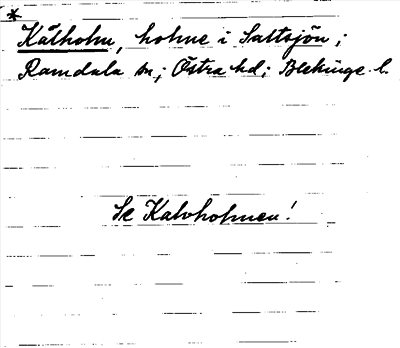 *
Kålholm, holme i Saltsjön;
Ramdala sn; Östra hd; Blekinge l.
Se Kalvholmen!